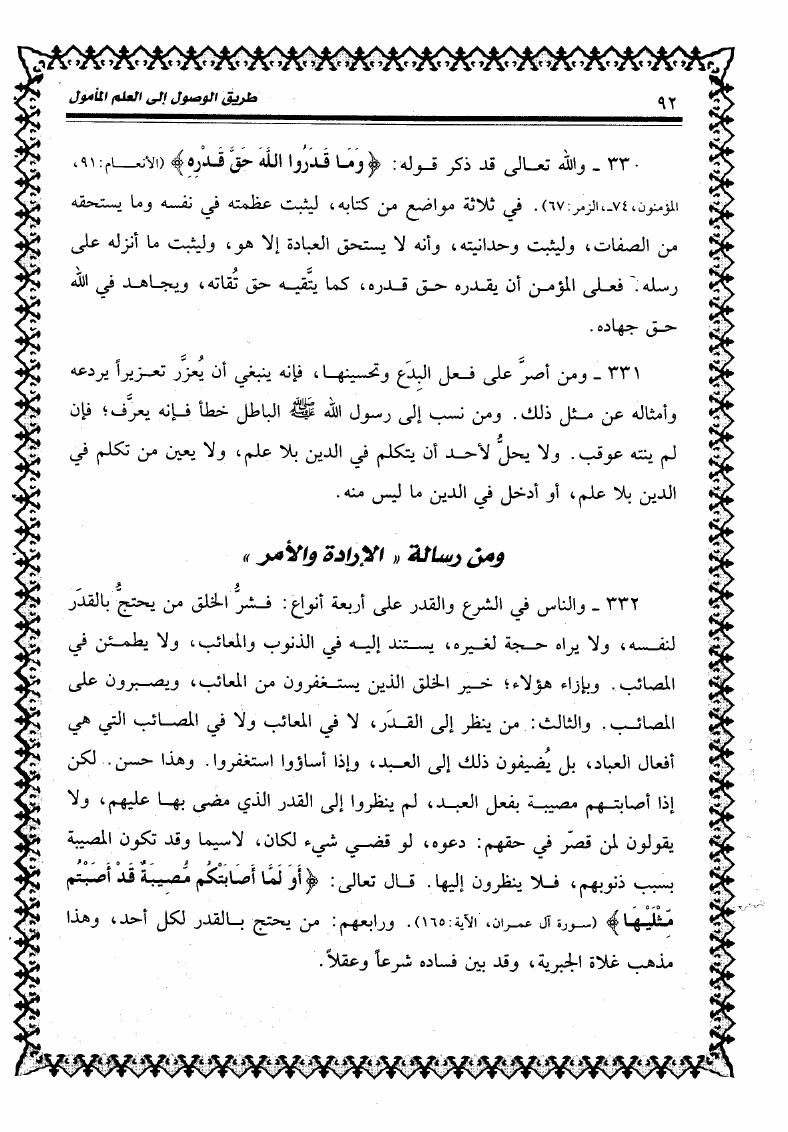 ٩٢
طريق الوصول إلى العلم المأمول
٣٣٠ ـ والله تعـالى قد ذكر قـوله: ﴿وَمَا قَدَرُوا اللَّهَ حَقَّ قَدْرِهِ﴾ (الأنعـام: ٩١،
المؤمنون، ٧٤ـ، الزمر: ٦٧). في ثلاثة مواضع من كتابه، ليثبت عظمته في نفسه وما يستحقه
من الصفات، وليثبت وحدانيته، وأنه لا يستحق العبادة إلا هو، وليثبت ما أنزله على
رسله. فعـلى المؤمـن أن يقـدره حـق قـدره، كما يتَّقيـه حق تُقاته، ويجـاهـد في الله
حـق جهاده.
٣٣١ ـ ومن أصرَّ على فـعل البِدَع وتحسينهـا، فإنه ينبغي أن يُعزَّر تعـزيراً يردعه
وأمثاله عن مـثل ذلك. ومن نسب إلى رسول الله ﷺ الباطل خطأ فـإنه يعرَّف؛ فإن
لم ينته عوقب. ولا يحلُّ لأحـد أن يتكلم في الدين بلا علم، ولا يعين من تكلم في
الدين بلا علم، أو أدخل في الدين ما ليس منه.
ومن رسالة « الإرادة والأمر »
٣٣٢ ـ والناس في الشرع والقدر على أربعة أنواع: فـشرُّ الخلق من يحتجُّ بالقدَر
لنفـسه، ولا يراه حـجة لغـيره، يسـتند إليـه في الذنوب والمعائب، ولا يطمـئن في
المصائب. وبإزاء هؤلاء؛ خـير الخلق الذين يستـغفرون من المعائب، ويصـبرون على
المصائـب. والثالث: من ينظر إلى القـدَر، لا في المعائب ولا في المصـائب التي هي
أفعال العباد، بل يُضيفون ذلك إلى العـبد، وإذا أساؤوا استغفروا. وهذا حسن. لكن
إذا أصابتـهم مصيبـة بفعل العبـد، لم ينظروا إلى القدر الذي مضى بهـا عليهم، ولا
يقولون لمن قصّر في حقهم: دعوه، لو قضـي شيء لكان، لاسيما وقد تكون المصيبة
بسبب ذنوبهم، فـلا ينظرون إليها. قـال تعالى: ﴿أَوَ لَمَّا أَصَابَتْكُم مُّصِيبَةٌ قَدْ أَصَبْتُم
مِّثْلَيْهَا﴾ (سـورة آل عمـران، الآية: ١٦٥). ورابعهم: من يحتج بـالقدر لكل أحد، وهذا
مذهب غلاة الجبرية، وقد بين فساده شرعاً وعقلاً.